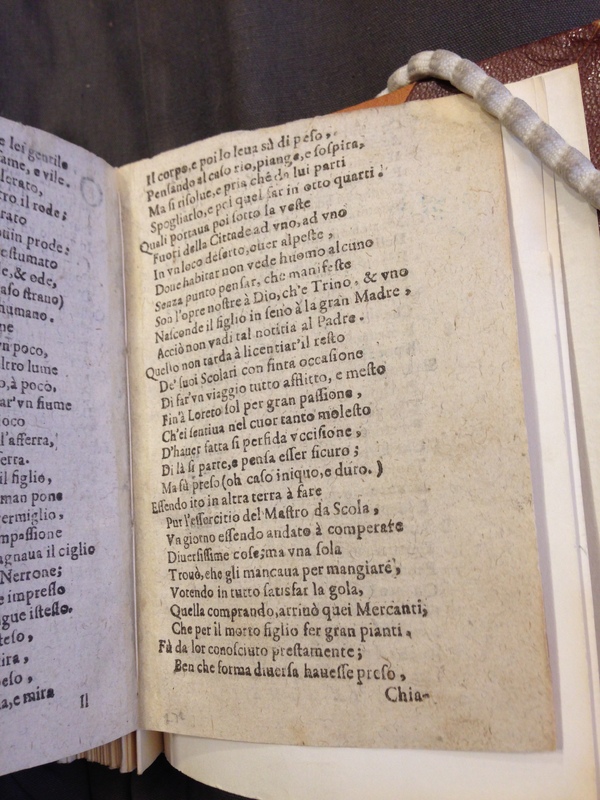 e lei gentile
ame, e vile.
lerato,
tro il rode;
rato
ouin prode:
estumato
e, & ode,
aso strano)
humano.
ne
vn poco,
ltro lume
o, à poco.
ar'vn fiume
oco
l'afferra,
erra.
il figlio,
man pone
vermiglio,
mpassione
agnaua il ciglio
Nerrone;
e impresso
ngue istesso.
teso,
ira,
peso,
a, e mira
Il
Il corpo, e poi lo leua sù di peso,
Pensando al caso rio, piange, e sospira,
Ma si risolue, e pria chè da lui parti
Spogliarlo, e poi quel far in otto quarti.
Quali portaua poi sotto la veste
Fuori della Cittade ad vno, ad vno
In vn loco deserto, ouer alpeste,
Doue habitar non vede huomo alcuno
Senza punto pensar, che manifeste
Son l'opre nostre à Dio, ch'è Trino, & vno
Nasconde il figlio in seno à la gran Madre,
Acciò non vadi tal notitia al Padre.
Quello non tarda à licentiar'il resto
De' suoi Scolari con finta occasione
Di far'vn viaggio tutto afflitto, e mesto
Fin'à Loreto sol per gran passione,
Ch'ei sentiua nel cuor tanto molesto
D'hauer fatta si perfida vccisione,
Di là si parte, e pensa esser sicuro;
Ma fù preso (oh caso iniquo, e duro.)
Essendo ito in altra terra à fare
Pur l'essercitio del Mastro da Scola,
Vn giorno essendo andato à comperare
Diuersissime cose; ma vna sola
Trouò, che gli mancaua per mangiare,
Volendo in tutto satisfar la gola,
Quella comprando, arriuò quei Mercanti,
Che per il morto figlio fer gran pianti.
Fù da lor conosciuto prestamente;
Ben che forma diuersa hauesse preso,
Chia-